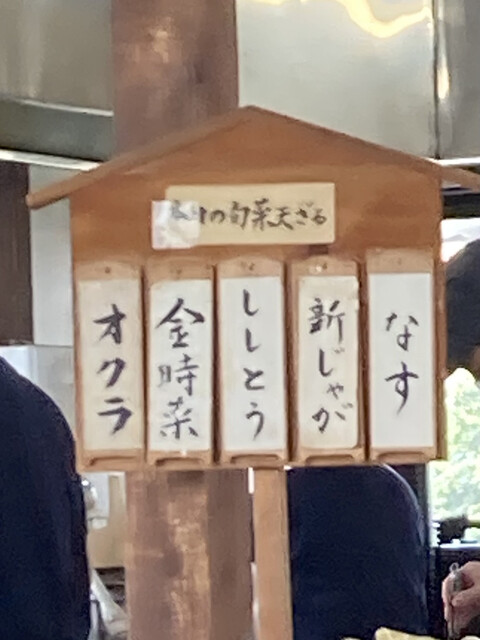 本日の旬菜天ざる
なす
新じゃが
ししとう
金時菜
オクラ